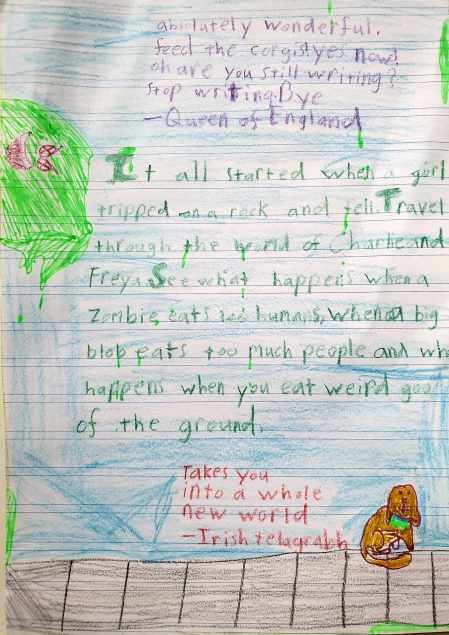 absolutely wonderful.
feed the corgis!yes now!
oh are you still writing?
stop writing.Bye
-Queen of England
It all started when a girl
tripped on a rock and fell.Travel
through the world of Charlie and
Freya.See what happens when a
Zombie eats humans, when a big
blob eats too much people and wh
happens when you eat weird goo
of the ground.
Takes you
into a whole
new world
-Irish telagrabh